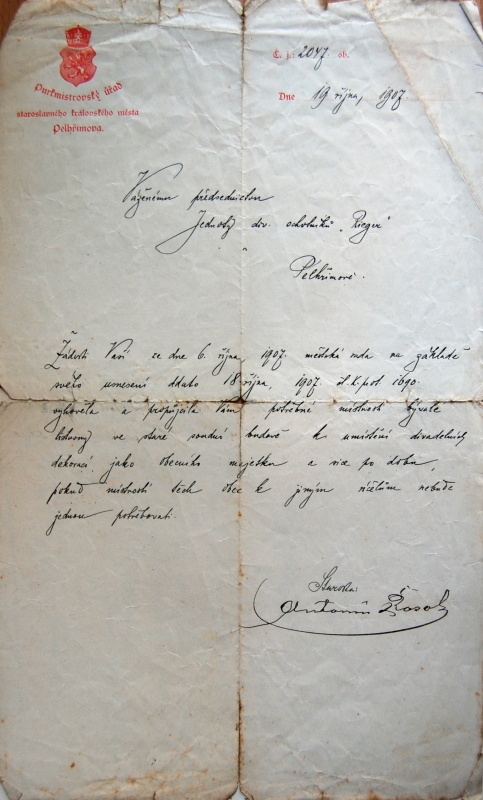 Purkmistrovský úřad
staroslavného královského města
Pelhřimova.
Č. j. 2047 ob.
Dne 19 října, 1907.
Váženému předsednictvu
Jednoty div. ochotníků „Rieger“
v
Pelhřimově.
Žádosti Vaší ze dne 6. října 1907. městská rada na základě
svého usnesení ddato 18 října, 1907. čl. k. pol. 1690.
vyhověla a propůjčila Vám potřebné místnosti bývalé
listovny ve staré soudní budově k umístění divadelních
dekorací jako obecního majetku a sice po dobu,
pokud místností těch obec k jiným účelům nebude
jednou potřebovati.
Starosta:
Antonín